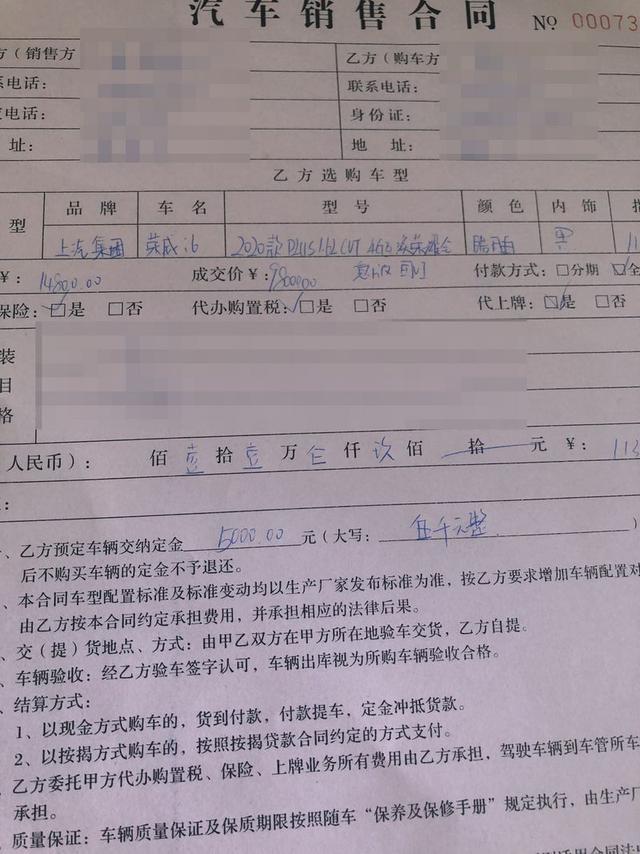 汽车销售合同 № 00073
方（销售方 乙方（购车方
系电话： 联系电话：
电话： 身份证：
址： 地 址：
乙方选购车型
型 品牌 车名 型号 颜色 内饰
上汽集团 荣威i6 2020款 黑
¥： 成交价¥： 付款方式：□分期 □全
保险：□是 □否 代办购置税：□是 □否 代上牌：□是 □否
装
目
格
人民币）： 佰 壹 拾 壹 万 仟 玖 佰 拾 元 ¥： 113
：
、乙方预定车辆交纳定金 5000.00 元（大写： 伍千元整 ）
后不购买车辆的定金不予退还。
、本合同车型配置标准及标准变动均以生产厂家发布标准为准，按乙方要求增加车辆配置对
由乙方按本合同约定承担费用，并承担相应的法律后果。
、交（提）货地点、方式：由甲乙双方在甲方所在地验车交货，乙方自提。
、车辆验收：经乙方验车签字认可，车辆出库视为所购车辆验收合格。
、结算方式：
1、以现金方式购车的，货到付款，付款提车，定金冲抵货款。
2、以按揭方式购车的，按照按揭贷款合同约定的方式支付。
、乙方委托甲方代办购置税、保险、上牌业务所有费用由乙方承担，驾驶车辆到车管所车
承担。
、质量保证：车辆质量保证及保质期限按照随车“保养及保修手册”规定执行，由生产厂